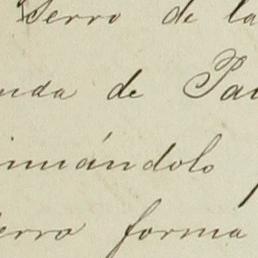 Serro de la
nda de Pa
inuándolo
erro forma